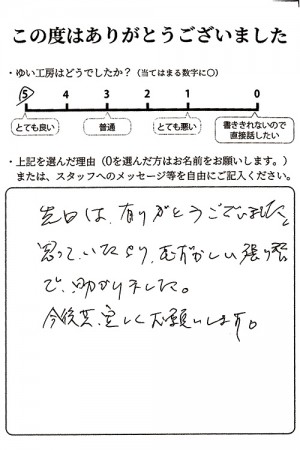 この度はありがとうございました
・ゆい工房はどうでしたか？（当てはまる数字に○）
5 4 3 2 1 0
とても良い 普通 とても悪い 書ききれないので直接話したい
・上記を選んだ理由（0を選んだ方はお名前をお願いします。）
または、スタッフへのメッセージ等を自由にご記入ください。
先日は、有りがとうございました。
思っていたより、むずかしい張り
で、助かりました。
今後共、宜しくお願いします。